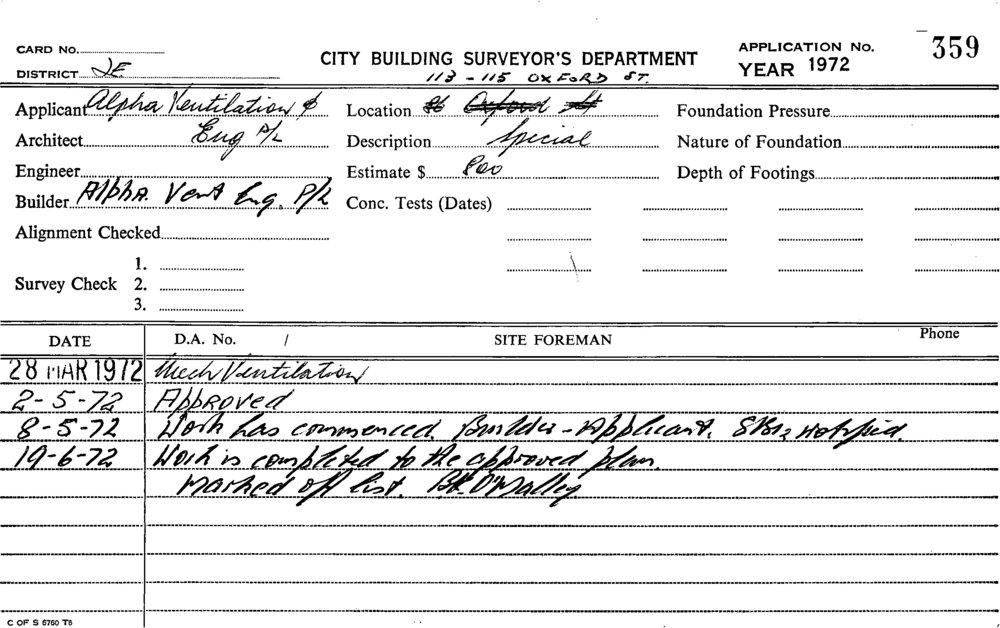 CARD No.
CITY BUILDING SURVEYOR'S DEPARTMENT
APPLICATION No. 359
DISTRICT
113 - 115 OXFORD ST.
YEAR 1972
Applicant Alpha Ventilation & Location Oxford St Foundation Pressure
Architect Eng P/L Description Special Nature of Foundation
Engineer Estimate $ 800 Depth of Footings
Builder Alpha. Vent Eng. P/L Conc. Tests (Dates)
Alignment Checked
1.
Survey Check 2.
3.
DATE D.A. No. / SITE FOREMAN Phone
28 MAR 1972 Mech Ventilation
2-5-72 Approved
8-5-72 Work has commenced. Builder - Applicant. notified.
19-6-72 Work is completed to the approved plan.
Marked off list. O'Malley
C OF S 6760 T6